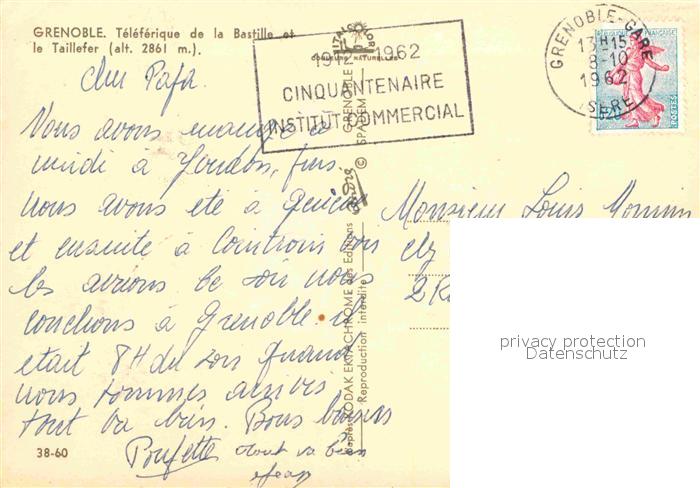 GRENOBLE. Téléférique de la Bastille et
le Taillefer (alt. 2861 m.).
ITALCOLOR
COULEURS NATURELLES
1912 1962
CINQUANTENAIRE
INSTITUT COMMERCIAL
GRENOBLE-GARE
13H15
8-10
1962
ISERE
REPUBLIQUE FRANÇAISE
POSTES
0,20
Cher Papa
Vous avons mangé a
midi à puis
nous avons été à Genève
et ensuite à Cointron voir
les avions le soir nous
couchons à Grenoble. il
etait 8H du soir quand
nous sommes arrivés
tout va bien. Bons baisers
Poufette tout va bien
Monsieur Louis
2 R
GRENOBLE
© SPADEM
André
d'après KODAK EKTACHROME des Editions
Reproduction interdite
38-60
privacy protection
Datenschutz